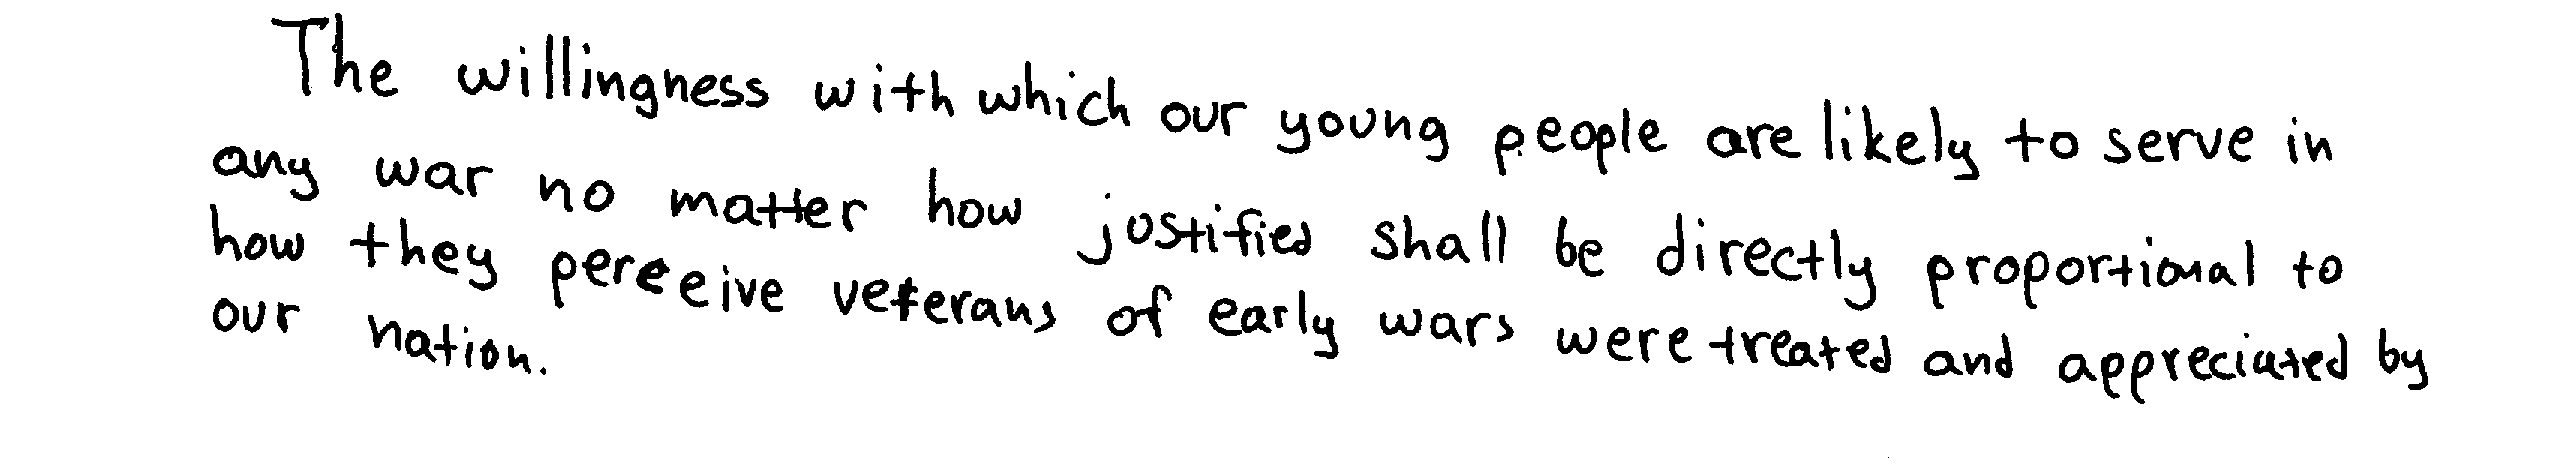 The willingness with which our young people are likely to serve in
any war no matter how justified shall be directly proportional to
how they pereeive veterans of early wars were treated and appreciated by
our nation.